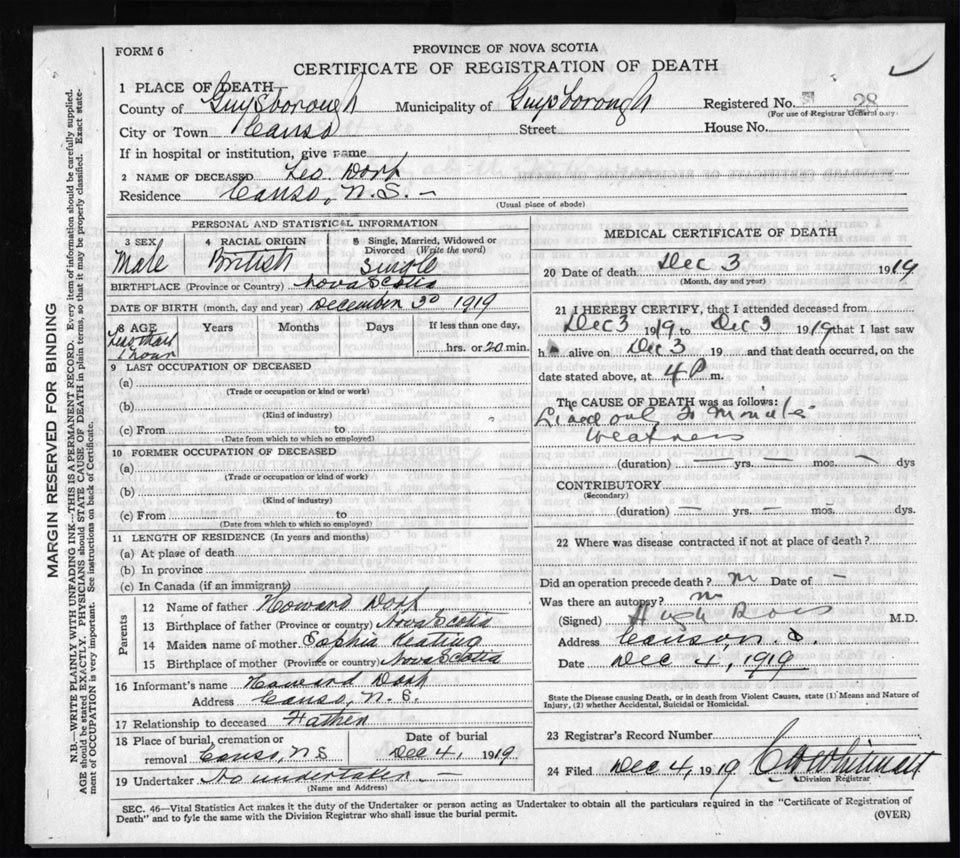 FORM 6
PROVINCE OF NOVA SCOTIA
CERTIFICATE OF REGISTRATION OF DEATH
1 PLACE OF DEATH
County of Guysborough Municipality of Guysborough Registered No. 28
(For use of Registrar General only.)
City or Town Canso Street House No.
If in hospital or institution, give name
2 NAME OF DECEASED Leo Dort
Residence Canso, N.S. –
(Usual place of abode)
PERSONAL AND STATISTICAL INFORMATION
3 SEX 4 RACIAL ORIGIN 5 Single, Married, Widowed or
Divorced (Write the word)
Male British Single
BIRTHPLACE (Province or Country) Nova Scotia
DATE OF BIRTH (month, day and year) December 3 1919
8 AGE Years Months Days If less than one day,
Less than
1 hour hrs. or 20 min.
9 LAST OCCUPATION OF DECEASED
(a)
(Trade or occupation or kind or work)
(b)
(Kind of industry)
(c) From to
(Date from which to which so employed)
10 FORMER OCCUPATION OF DECEASED
(a)
(Trade or occupation or kind or work)
(b)
(Kind of industry)
(c) From to
(Date from which to which so employed)
11 LENGTH OF RESIDENCE (In years and months)
(a) At place of death
(b) In province
(c) In Canada (if an immigrant)
Parents
12 Name of father Howard Dort
13 Birthplace of father (Province or country) Nova Scotia
14 Maiden name of mother Sophia Keating
15 Birthplace of mother (Province or country) Nova Scotia
16 Informant's name Howard Dort
Address Canso, N.S.
17 Relationship to deceased Father
18 Place of burial, cremation or Date of burial
removal Canso, N S Dec 4, 1919.
19 Undertaker No undertaker –
(Name and Address)
MEDICAL CERTIFICATE OF DEATH
20 Date of death Dec 3 1919
(Month, day and year)
21 I HEREBY CERTIFY, that I attended deceased from
Dec 3 1919 to Dec 3 1919 that I last saw
h alive on Dec 3 19 and that death occurred, on the
date stated above, at 4 P m.
The CAUSE OF DEATH was as follows:
Lived only 20 Minutes
Weakness
(duration) – yrs. – mos. – dys
CONTRIBUTORY
(Secondary)
(duration) – yrs. – mos. dys.
22 Where was disease contracted if not at place of death?
Did an operation precede death? no Date of –
Was there an autopsy? no
(Signed) Hugh M.D.
Address Canso N. S.
Date Dec 4, 1919
State the Disease causing Death, or in death from Violent Causes, state (1) Means and Nature of
Injury, (2) whether Accidental, Suicidal or Homicidal.
23 Registrar's Record Number
24 Filed Dec 4, 1919
Division Registrar
SEC. 46—Vital Statistics Act makes it the duty of the Undertaker or person acting as Undertaker to obtain all the particulars required in the "Certificate of Registration of
Death" and to fyle the same with the Division Registrar who shall issue the burial permit.
(OVER)
MARGIN RESERVED FOR BINDING
N.B.—WRITE PLAINLY WITH UNFADING INK—THIS IS A PERMANENT RECORD. Every item of information should be carefully supplied.
AGE should be stated EXACTLY. PHYSICIANS should STATE CAUSE OF DEATH in plain terms, so that it may be properly classified. Exact state-
ment of OCCUPATION is very important. See instructions on back of Certificate.